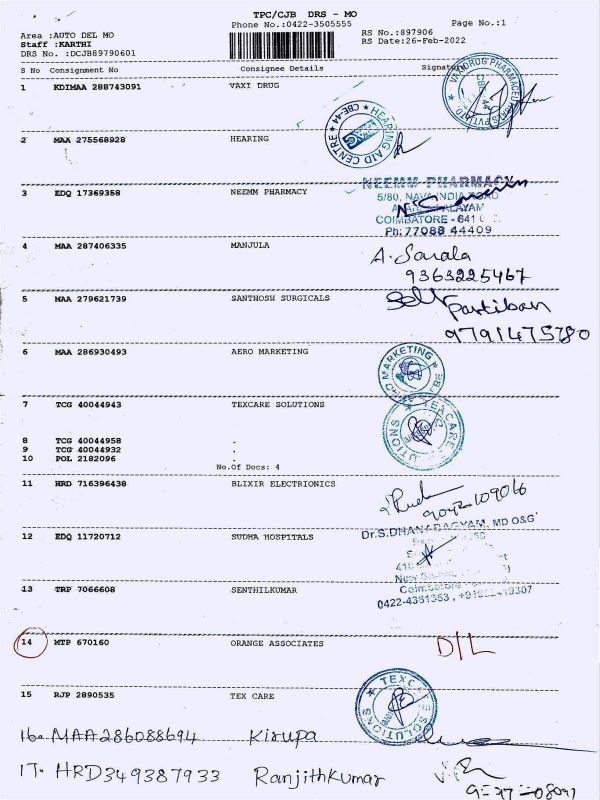 TPC/CJB DRS - MO
Phone No.:0422-3505555
Page No.:1
Area :AUTO DEL MO
Staff :KARTHI
DRS No. :DCJB89790601
RS No.:897906
RS Date:26-Feb-2022
S No Consignment No Consignee Details Signature
1 KDIMAA 288743091 VAXI DRUG
VAXI DRUG PHARMACEUTICALS PVT LTD
2 MAA 275568928 HEARING
HEARING AID CENTRE ★ CBE-44 ★
3 EDQ 17369358 NEEMM PHARMACY
NEEMM PHARMACY
5/80, NAVA INDIA ROAD
COIMBATORE - 641
Ph: 77088 44409
4 MAA 287406335 MANJULA
A. Sarala
9363225467
5 MAA 279621739 SANTHOSH SURGICALS
Partiban
9791475780
6 MAA 286930493 AERO MARKETING
MARKETING
7 TCG 40044943 TEXCARE SOLUTIONS
TEXCARE
8 TCG 40044958 .
9 TCG 40044932 .
10 POL 2182096 .
No.Of Docs: 4
11 HRD 716396438 BLIXIR ELECTRIONICS
9042109066
12 EDQ 11720712 SUDHA HOSPITALS
MD O&G
13 TRP 7066608 SENTHILKUMAR
0422-4351353
14 MTP 670160 ORANGE ASSOCIATES
D/L
15 RJP 2890535 TEX CARE
16. MAA286088694 Kirupa
17. HRD349387933 Ranjithkumar